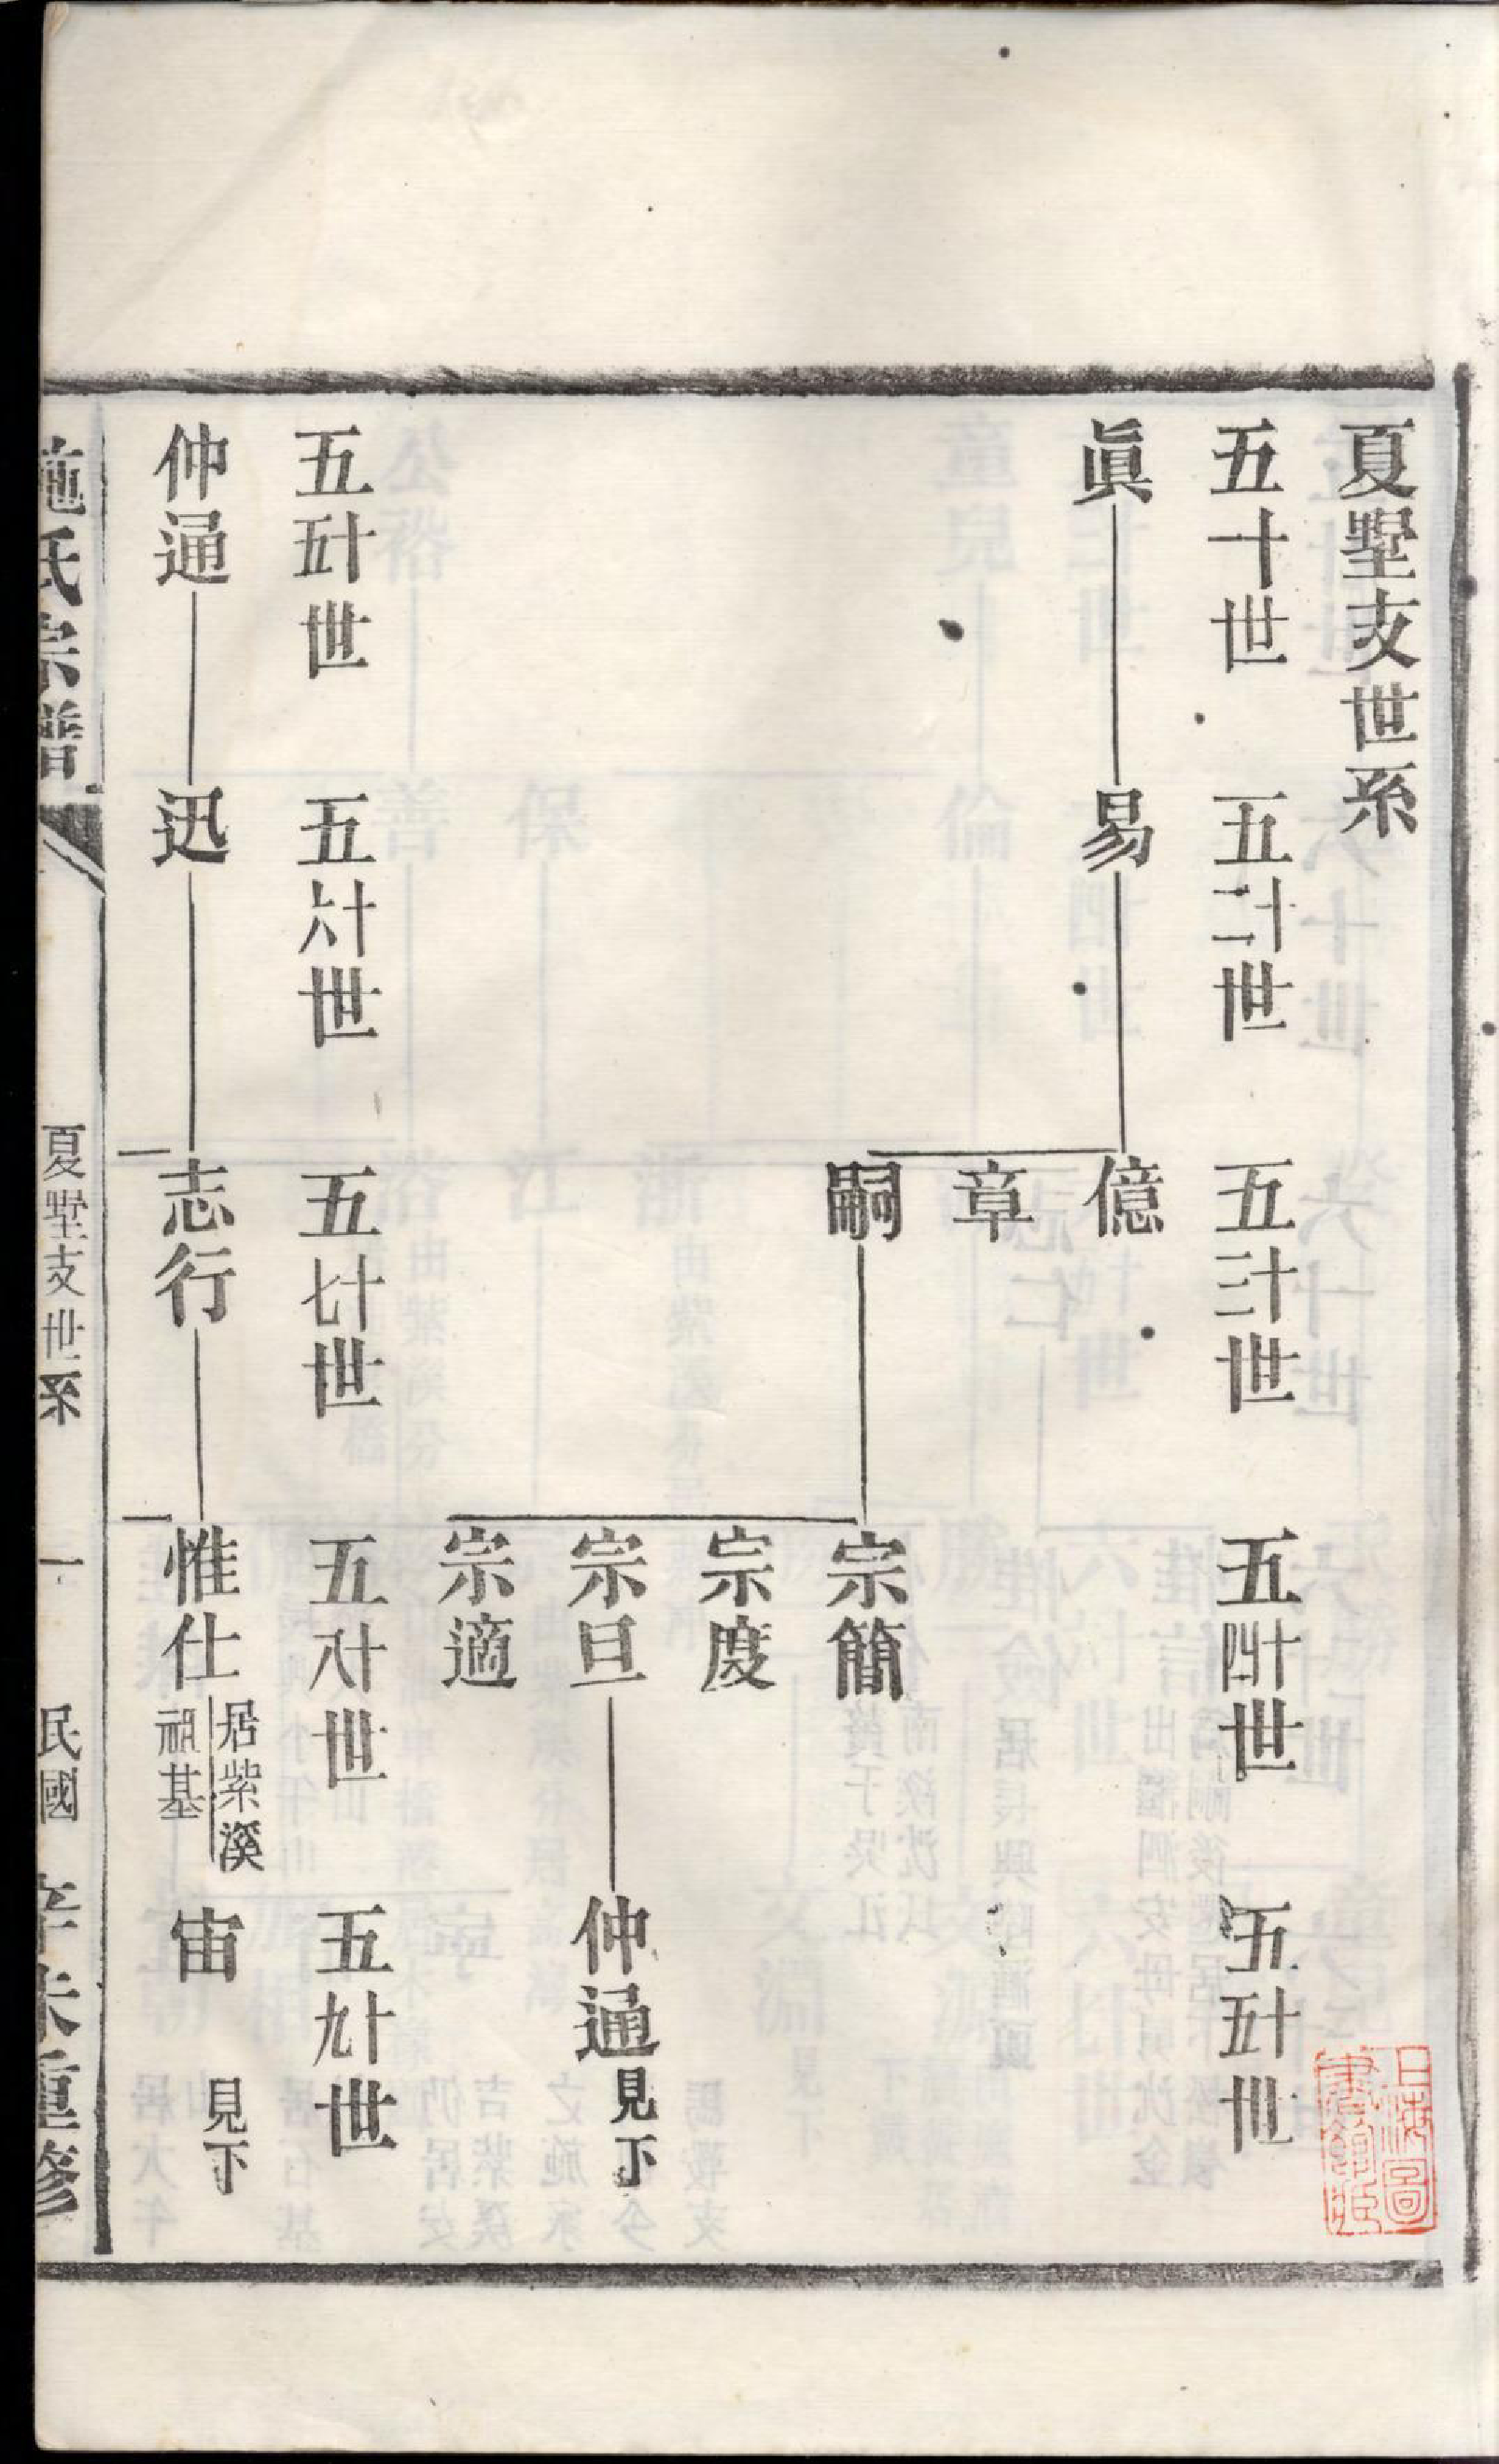 夏墅支世系
五十世 五十二世 五十三世 五十四世 五十五世
眞 易 億
章
嗣 宗簡
宗度
宗旦 仲通 見下
宗適
五十五世 五十六世 五十七世 五十八世 五十九世
仲通 迅 志行 惟仕 居紫溪
祖基
宙 見下
施氏宗譜 夏墅支世系 一 民國 辛未重修
上海圖
書館藏